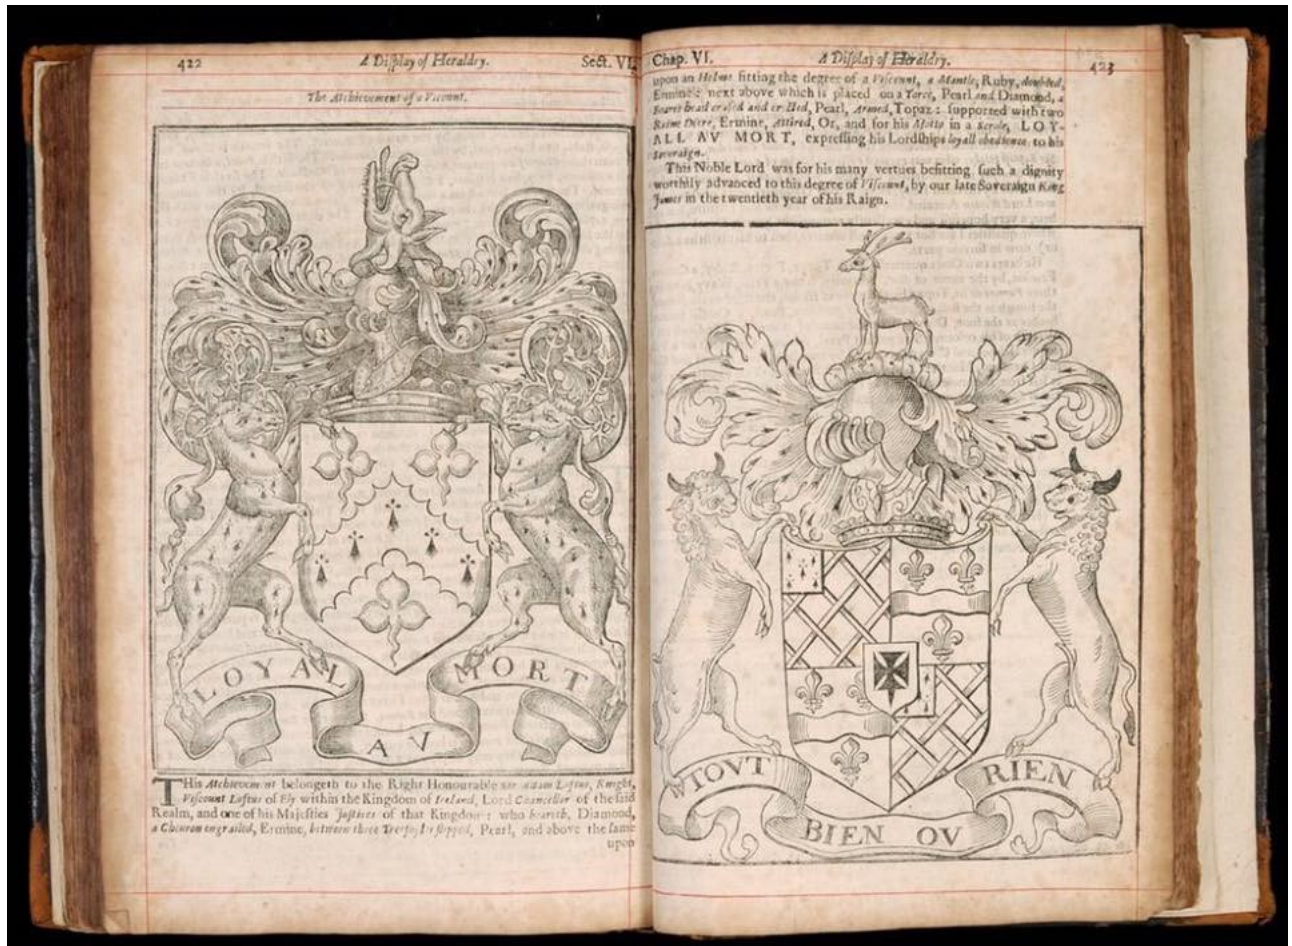 422
A Display of Heraldry.
Sect. VI.
The Atchievement of a Vicount.
LOYAL
AV
MORT
THis Atchievement belongeth to the Right Honourable Adam Loftus, Knight,
Viscount Loftus of Ely within the Kingdom of Ireland, Lord Chancellor of the said
Realm, and one of his Majesties Justices of that Kingdom: who beareth, Diamond,
a Cheuron engrailed, Ermine, between three Trefoyls slipped, Pearl, and above the same
upon
Chap. VI.
A Display of Heraldry.
423
upon an Helme fitting the degree of a Viscount, a Mantle, Ruby, doubled,
Ermine: next above which is placed on a Torce, Pearl and Diamond, a
Boares head erased and erected, Pearl, Armed, Topaz: supported with two
Raine Deere, Ermine, Attired, Or, and for his Motto in a Scrole, LOY-
ALL AV MORT, expressing his Lordships loyall obedience to his
Soveraign.
This Noble Lord was for his many vertues befitting such a dignity
worthily advanced to this degree of Viscount, by our late Soveraign King
James in the twentieth year of his Raign.
TOVT
BIEN OV
RIEN